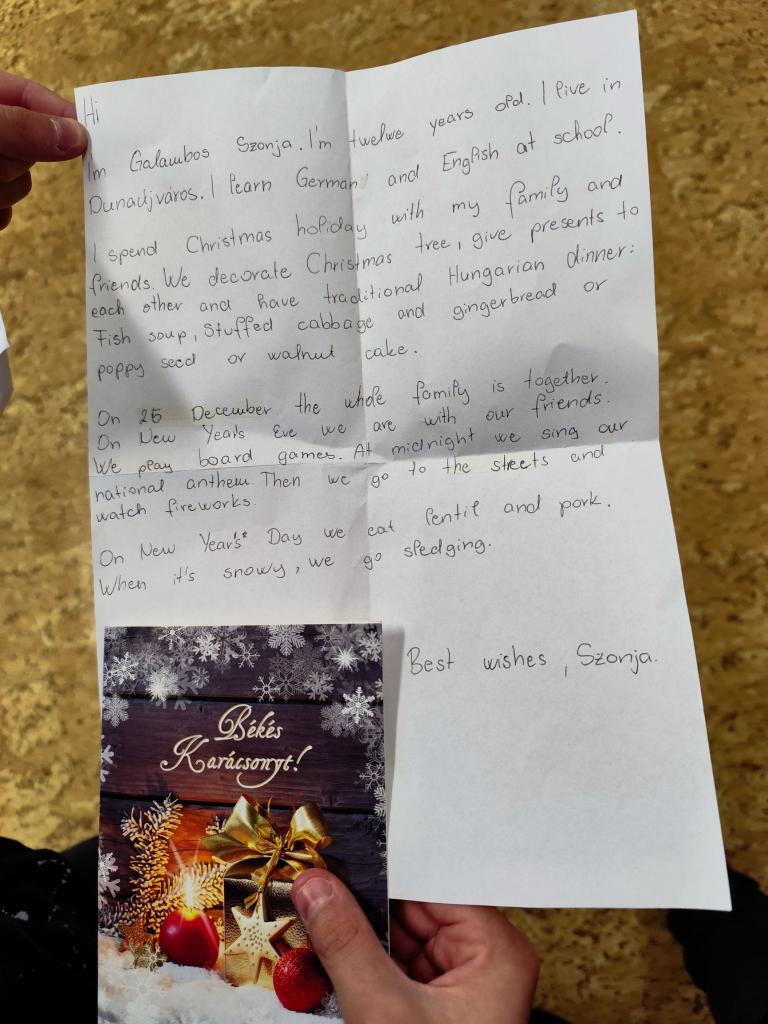 Hi
I'm Galambos Szonja. I'm twelwe years old. I live in
Dunaújváros. I learn German and English at school.
I spend Christmas holiday with my family and
friends. We decorate Christmas tree, give presents to
each other and have traditional Hungarian dinner:
Fish soup, Stuffed cabbage and gingerbread or
poppy seed or walnut cake.
On 25 December the whole family is together.
On New Year's Eve we are with our friends.
We play board games. At midnight we sing our
national anthem. Then we go to the streets and
watch fireworks.
On New Year's Day we eat lentil and pork.
When it's snowy, we go sledging.
Best wishes, Szonja.
Békés
Karácsonyt!